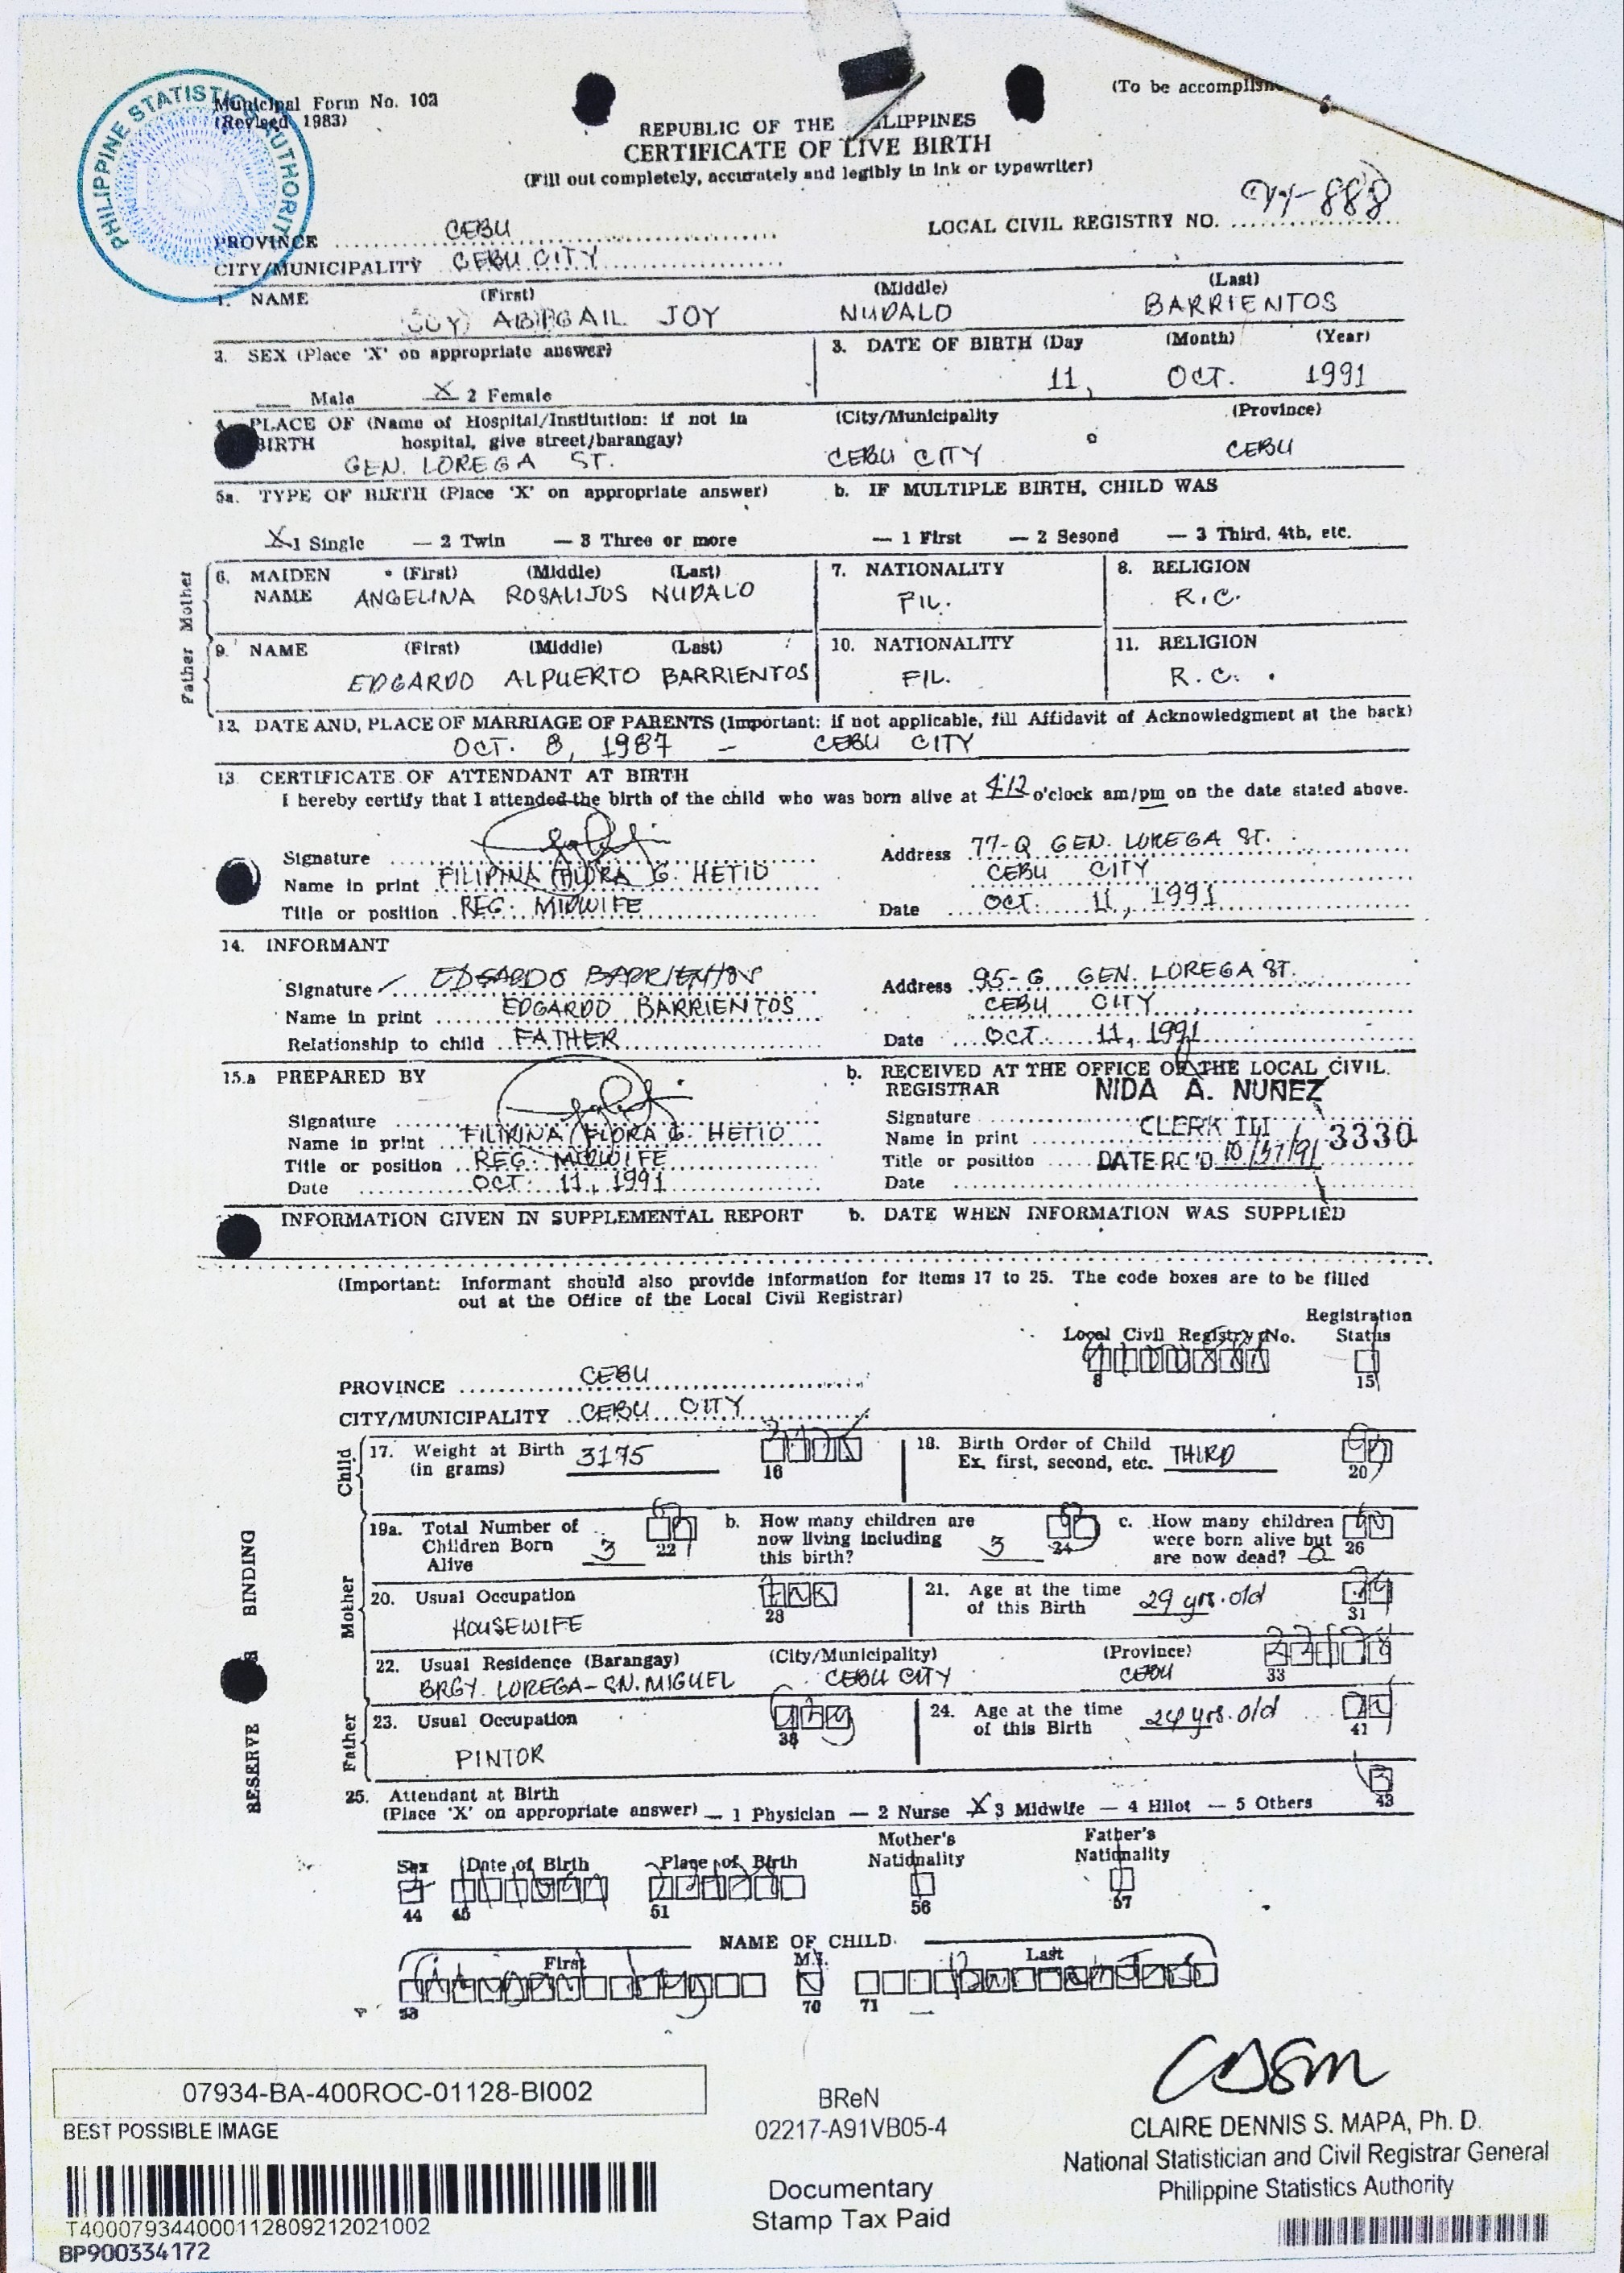 PHILIPPINE STATISTICS AUTHORITY
Municipal Form No. 102
(Revised 1983)
(To be accomplish
REPUBLIC OF THE LIPPINES
CERTIFICATE OF LIVE BIRTH
(Fill out completely, accurately and legibly in ink or typewriter)
LOCAL CIVIL REGISTRY NO. -888
PROVINCE CEBU
CITY/MUNICIPALITY CEBU CITY
1. NAME (First) (Middle) (Last)
ABIGAIL JOY NUDALO BARRIENTOS
2. SEX (Place 'X' on appropriate answer) 3. DATE OF BIRTH (Day (Month) (Year)
11, OCT. 1991
Male X 2 Female
PLACE OF (Name of Hospital/Institution: if not in (City/Municipality (Province)
BIRTH hospital, give street/barangay)
GEN. LOREGA ST. CEBU CITY CEBU
5a. TYPE OF BIRTH (Place 'X' on appropriate answer) b. IF MULTIPLE BIRTH, CHILD WAS
X 1 Single — 2 Twin — 3 Three or more — 1 First — 2 Sesond — 3 Third, 4th, etc.
Mother
6. MAIDEN (First) (Middle) (Last) 7. NATIONALITY 8. RELIGION
NAME ANGELINA ROSALIJOS NUDALO FIL. R.C.
Father
9. NAME (First) (Middle) (Last) 10. NATIONALITY 11. RELIGION
EDGARDO ALPUERTO BARRIENTOS FIL. R.C.
12. DATE AND, PLACE OF MARRIAGE OF PARENTS (Important: if not applicable, fill Affidavit of Acknowledgment at the back)
OCT. 8, 1987 - CEBU CITY
13 CERTIFICATE OF ATTENDANT AT BIRTH
I hereby certify that I attended the birth of the child who was born alive at 4:12 o'clock am/pm on the date stated above.
Signature Address 77-Q GEN. LOREGA ST.
Name in print FILIPINA FLORA G. HETIO CEBU CITY
Title or position REG. MIDWIFE Date OCT. 11, 1991
14. INFORMANT
Signature EDGARDO BARRIENTOS Address 95-G GEN. LOREGA ST.
Name in print EDGARDO BARRIENTOS CEBU CITY
Relationship to child FATHER Date OCT. 11, 1991
15.a PREPARED BY b. RECEIVED AT THE OFFICE OF THE LOCAL CIVIL
REGISTRAR NIDA A. NUÑEZ
Signature Signature CLERK III
Name in print FILIPINA FLORA G. HETIO Name in print 3330
Title or position REG. MIDWIFE Title or position DATE RC'D
Date OCT. 11, 1991 Date
INFORMATION GIVEN IN SUPPLEMENTAL REPORT b. DATE WHEN INFORMATION WAS SUPPLIED
(Important: Informant should also provide information for items 17 to 25. The code boxes are to be filled
out at the Office of the Local Civil Registrar)
Registration
Local Civil Registry No. Status
8 15
PROVINCE CEBU
CITY/MUNICIPALITY CEBU CITY
Child
17. Weight at Birth 3175 18. Birth Order of Child THIRD
(in grams) 16 Ex. first, second, etc. 20
19a. Total Number of b. How many children are c. How many children
Children Born 3 22 now living including 3 24 were born alive but 26
Alive this birth? are now dead? 0
BINDING
Mother
20. Usual Occupation 28 21. Age at the time 29 yrs. old 31
HOUSEWIFE of this Birth
22. Usual Residence (Barangay) (City/Municipality) (Province) 33
BRGY. LOREGA-SN. MIGUEL CEBU CITY CEBU
RESERVE
Father
23. Usual Occupation 38 24. Age at the time 24 yrs. old 41
PINTOR of this Birth
25. Attendant at Birth 43
(Place 'X' on appropriate answer) — 1 Physician — 2 Nurse X 3 Midwife — 4 Hilot — 5 Others
Mother's Father's
Sex Date of Birth Place of Birth Nationality Nationality
44 45 51 56 57
NAME OF CHILD
First M.I. Last
58 70 71
07934-BA-400ROC-01128-BI002
BEST POSSIBLE IMAGE
T400079344000112809212021002
BP900334172
BReN
02217-A91VB05-4
Documentary
Stamp Tax Paid
CLAIRE DENNIS S. MAPA, Ph. D.
National Statistician and Civil Registrar General
Philippine Statistics Authority